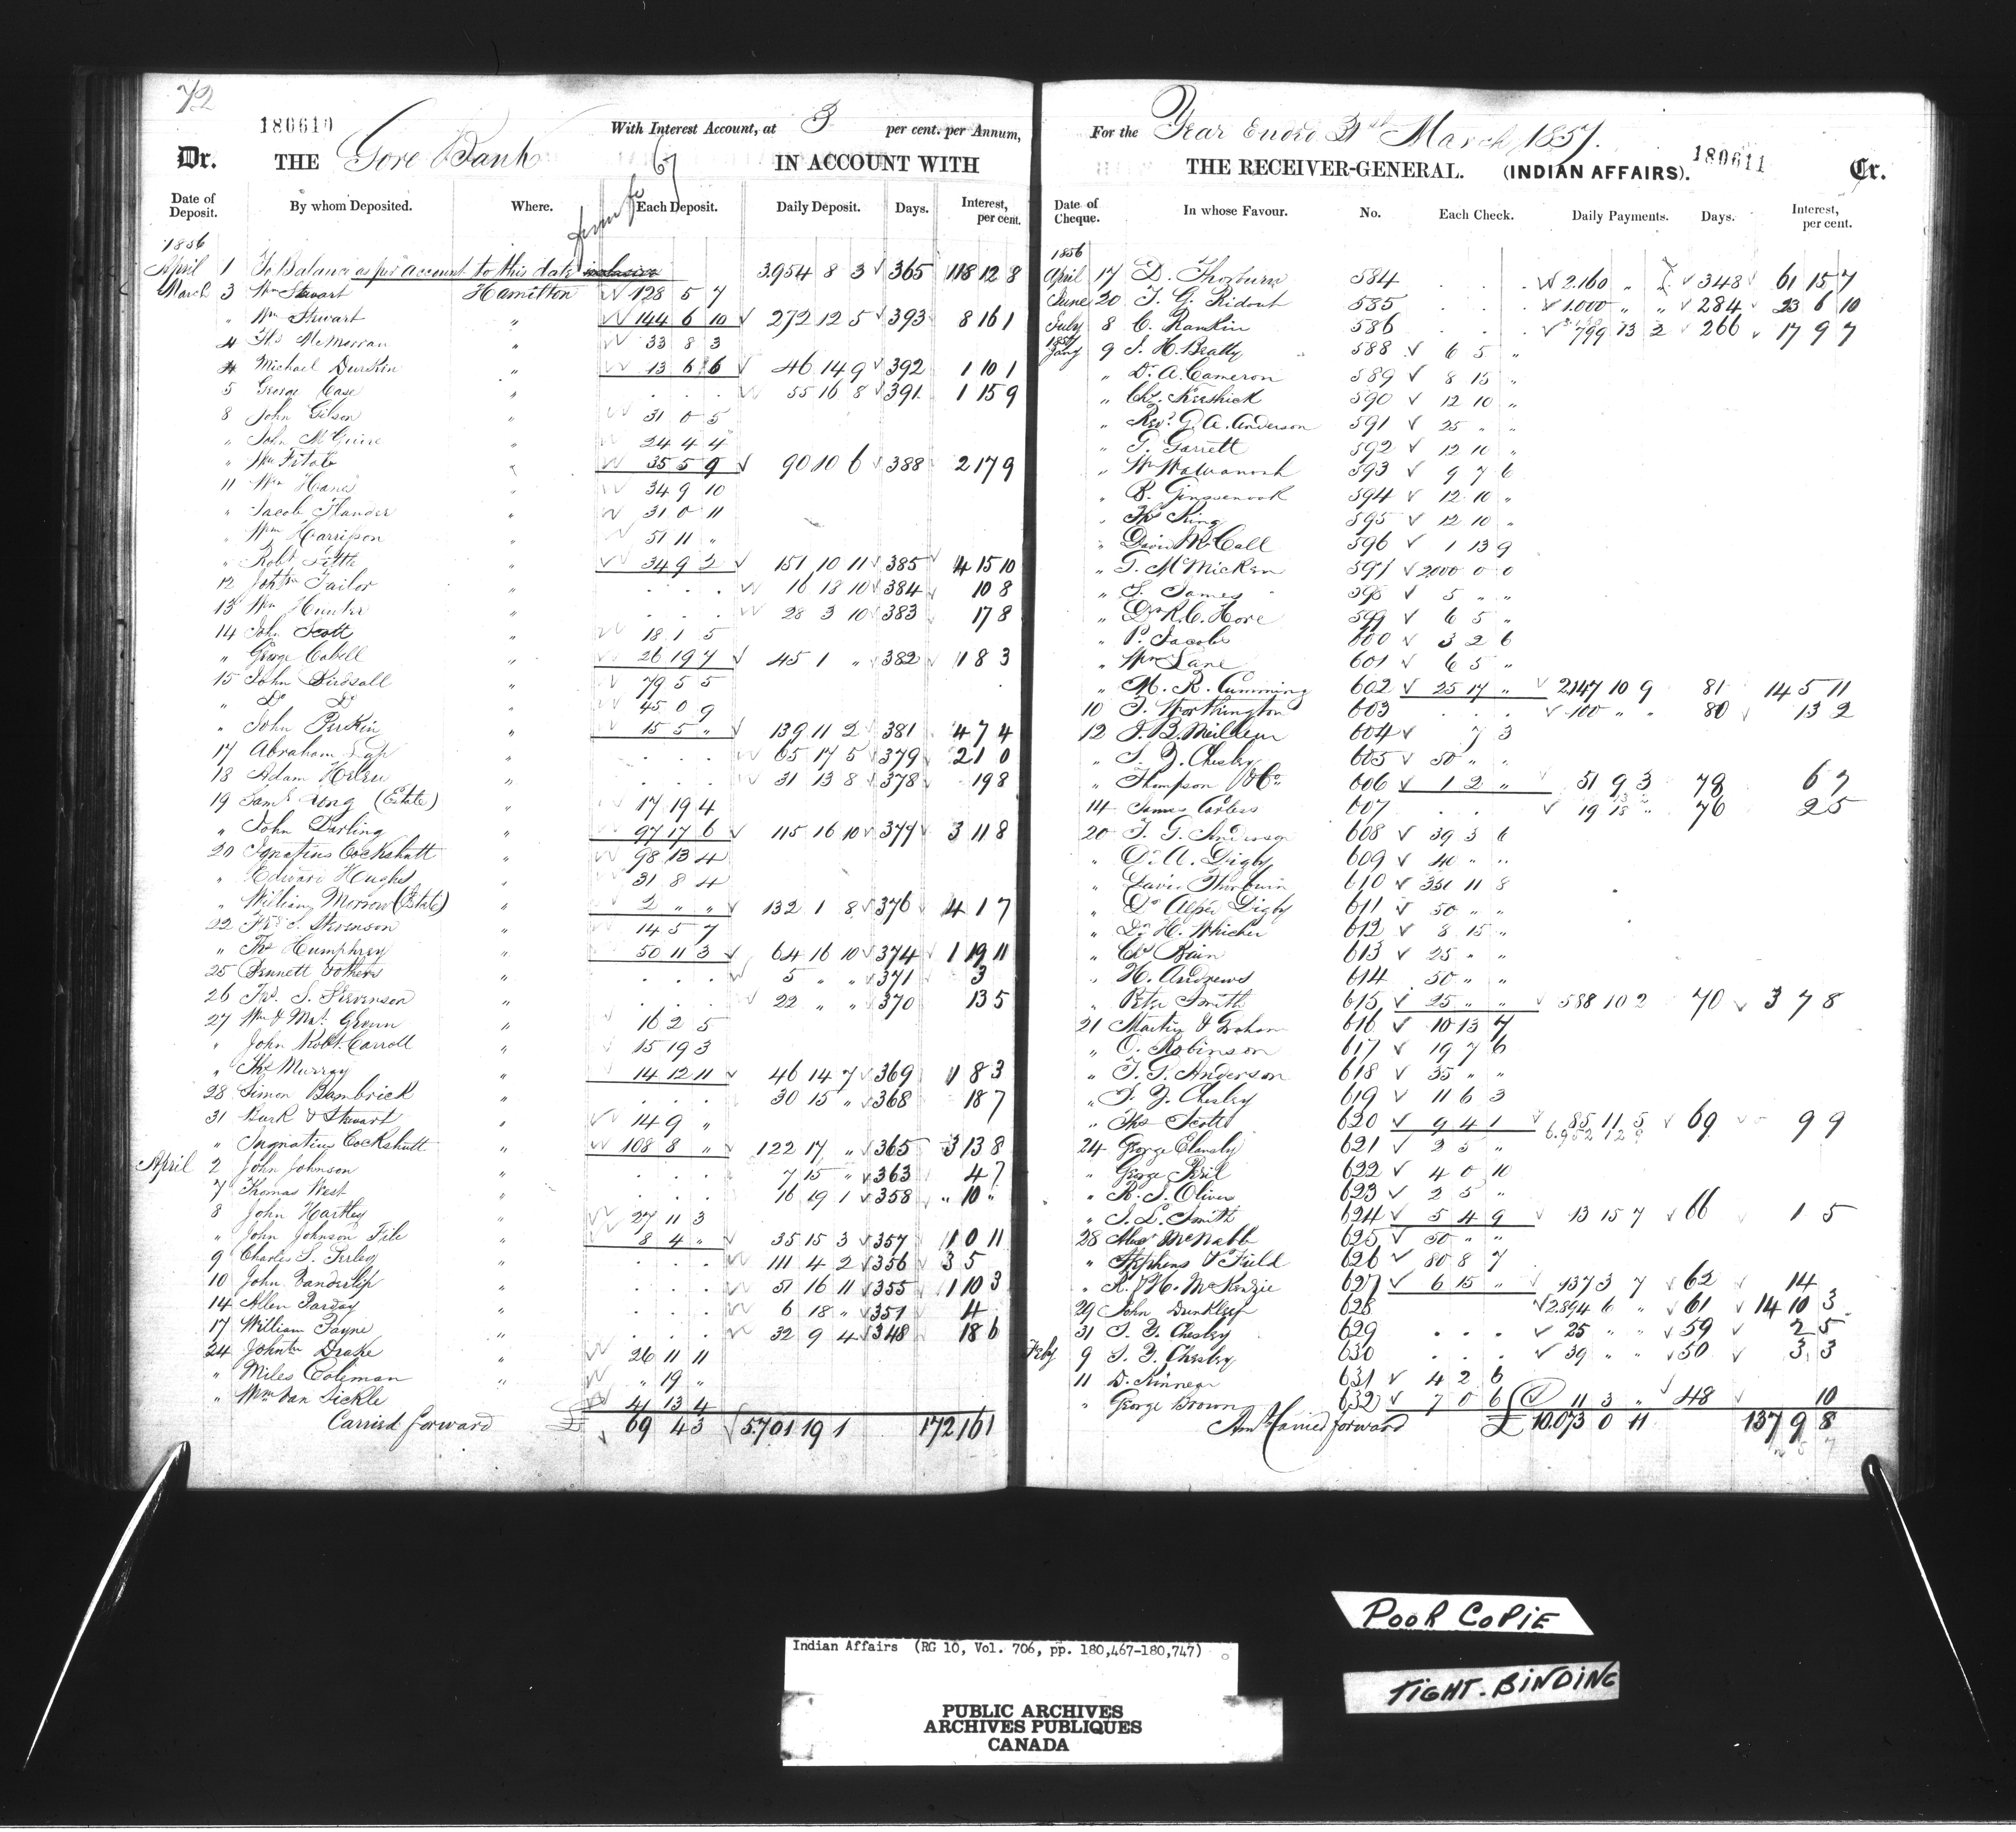 72
180610
With Interest Account, at 3 per cent. per Annum,
Dr. THE Gore Bank IN ACCOUNT WITH
67
from fo
Date of Deposit. By whom Deposited. Where. Each Deposit. Daily Deposit. Days. Interest, per cent.
1856
April 1 To Balance as per account to this date inclusive 3.954 8 3 365 118 12 8
March 3 Wm Stewart Hamilton 128 5 7
" Wm Stewart " 144 6 10 272 12 5 393 8 16 1
4 Ths McMorran " 33 8 3
4 Michael Durskin " 13 6 6 46 14 9 392 1 10 1
5 George Case " . . . 55 16 8 391 1 15 9
8 John Gilson " 31 0 5
" John McGuire " 24 4 4
" Wm " 35 5 9 90 10 6 388 2 17 9
11 Wm Hanes " 34 9 10
" Jacob Flander " 31 0 11
" Wm Harrison " 51 11 "
" Robt Little " 34 9 2 151 10 11 385 4 15 10
12 Tailor " . . . 16 18 10 384 10 8
13 Wm Hunter " . . . 28 3 10 383 17 8
14 John Scott " 18 1 5
" George Cabell " 26 19 7 45 1 " 382 1 8 3
15 John Birdsall " 79 5 5
" Do Do " 45 0 9
" John Perkin " 15 5 " 139 11 2 381 4 7 4
17 Abraham " . . . 65 17 5 379 2 1 0
18 Adam " . . . 31 13 8 378 19 8
19 Saml Long (Estate) " 17 19 4
" John Darling " 97 17 6 115 16 10 377 3 11 8
20 Ignatius Cockshutt " 98 13 4
" Edward Hughes " 31 8 4
" William Morrow (Estate) " 2 " " 132 1 8 376 4 1 7
22 S. Stevenson " 14 5 7
" Ths Humphrey " 50 11 3 64 16 10 374 1 19 11
25 Bennett & others " . . . 5 " " 371 3
26 S. Stevenson " . . . 22 " " 370 13 5
27 Wm & Mat. Green " 16 2 5
" John Robt. Carroll " 15 19 3
" Ths Murray " 14 12 11 46 14 7 369 1 8 3
28 Simon Bambrick " . . . 30 15 " 368 18 7
31 Burk & Stewart " 14 9 "
" Ingnatius Cockshutt " 108 8 " 122 17 " 365 3 13 8
April 2 John Johnson " . . . 7 15 " 363 4 7
7 Thomas West " . . . 16 19 1 358 " 10 "
8 John Hartley " 27 11 3
" John Johnson File " 8 4 " 35 15 3 357 1 0 11
9 Charles S. Perley " . . . 111 4 2 356 3 5
10 John Vanderlip " . . . 51 16 11 355 1 10 3
14 Allen Parday " . . . 6 18 " 351 4
17 William Payne " . . . 32 9 4 348 18 6
24 Johntn Drake " 26 11 11
" Miles Coleman " " 19 "
" Wm Van Sickle 41 13 4
Carried forward £ 69 4 3 5.701 19 1 172 16 1
For the Year Ended 31st March, 1857.
THE RECEIVER-GENERAL. (INDIAN AFFAIRS). 180611 Cr.
Date of Cheque. In whose Favour. No. Each Check. Daily Payments. Days. Interest, per cent.
1856
April 17 D. Thorburn 584 . . . 2.160 " 7 348 61 15 7
June 20 T. G. Ridout 585 . . . 1.000 " " 284 23 6 10
July 8 C. Rankin 586 . . . 799 13 2 266 17 9 7
1857
Jany 9 J. H. Beatty 588 6 5 "
" Dr A. Cameron 589 8 15 "
" Chs. Keeshick 590 12 10 "
" Revd G. A. Anderson 591 25 " "
" T. Garrett 592 12 10 "
" Wm Wawanosh 593 9 7 6
" B. 594 12 10 "
" Ths King 595 12 10 "
" David McCall 596 1 13 9
" G. McMicken 597 2000 0 0
" S. James 598 5 " "
" Dr R. C. Hore 599 6 5 "
" P. Jacobs 600 3 2 6
" Wm Lane 601 6 5 "
" M. R. Cumming 602 25 17 " 2147 10 9 81 14 5 11
10 T. Worthington 603 . . . 100 " " 80 13 2
12 J. B. Meilleur 604 7 3
" S. Y. Chesley 605 50 " "
" Thompson & Co 606 1 2 " 51 9 3 78 6 7
14 James Corless 607 . . 19 13 " 76 2 5
20 T. G. Anderson 608 39 3 6
" Dr A. Digby 609 40 " "
" David Thorburn 610 351 11 8
" Dr Alfred Digby 611 50 " "
" Dr H. Whicher 612 8 15 "
" Chs Bain 613 25 " "
" H. Andrews 614 50 " "
" Peter Smith 615 25 " " 588 10 2 70 3 7 8
21 Martin & Graham 616 10 13 7
" O. Robinson 617 19 7 6
" T. G. Anderson 618 35 " "
" S. Y. Chesley 619 11 6 3
" Ths Scott 620 9 4 1 85 11 5 69 9 9
6.952 12 9
24 George Clansby 621 2 5 "
" George 622 4 0 10
" R. J. Oliver 623 2 5 "
" J. L. Smith 624 5 4 9 13 15 7 66 1 5
28 Alexr McNabb 625 50 " "
" Stephens & Field 626 80 8 7
" R. & H. McKenzie 627 6 15 " 137 3 7 62 14
29 John Dunkley 628 2.894 6 " 61 14 10 3
31 S. Y. Chesley 629 . . . 25 " " 59 2 5
Feby 9 S. Y. Chesley 630 . . . 39 " " 50 3 3
11 D. Kinnear 631 4 2 6
" George Brown 632 7 0 6 11 3 " 48 10
Amt Carried forward £ 10.073 0 11 137 9 8
POOR COPIE
TIGHT-BINDING
Indian Affairs (RG 10, Vol. 706, pp. 180,467-180,747)
PUBLIC ARCHIVES
ARCHIVES PUBLIQUES
CANADA